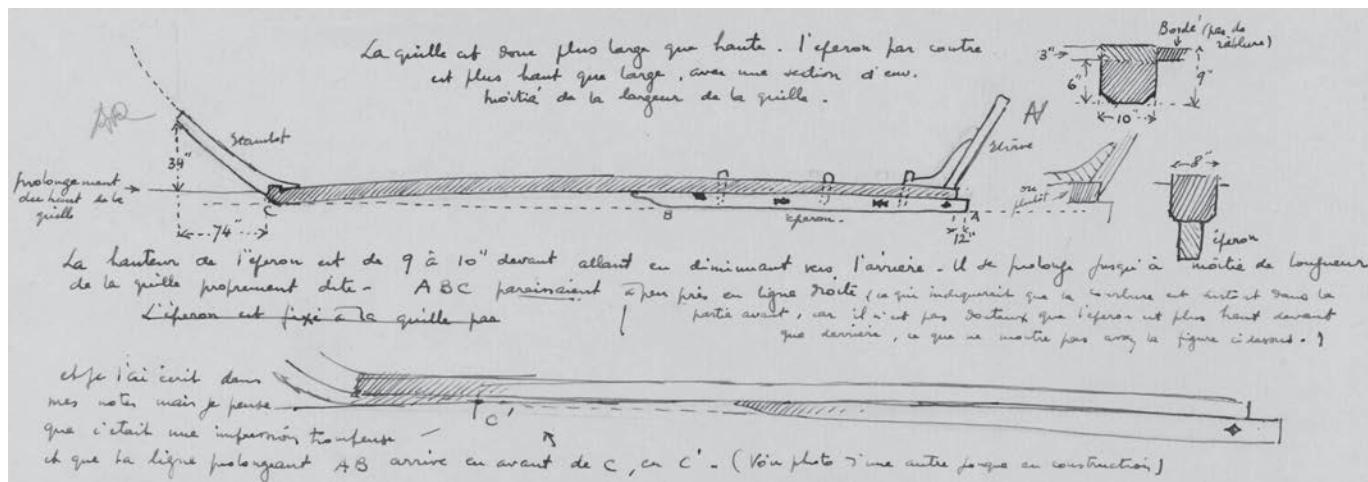 La quille est donc plus large que haute. l'éperon par contre
est plus haut que large, avec une section d'env.
moitié de la largeur de la quille.
Bordé (pas de
râblure)
3"
6"
9"
10"
AR
Étambot
39"
prolongement
du haut de la
quille
C
74"
B
éperon
A
12"
AV
Étrave
ou
plutôt
8"
éperon
La hauteur de l'éperon est de 9 à 10" devant allant en diminuant vers l'arrière. Il se prolonge jusqu'à moitié de longueur
de la quille proprement dite. ABC paraissaient à peu près en ligne droite, (ce qui indiquerait que la courbure est surtout dans la
partie avant, car il n'est pas douteux que l'éperon est plus haut devant
que derrière, ce que ne montre pas assez la figure ci dessous.)
L'éperon est fixé à la quille par
et je l'ai écrit dans
mes notes mais je pense
que c'était une impression trompeuse —
et que la ligne prolongeant AB arrive en avant de C, en C'. (Voir photo d'une autre jonque en construction)
C'